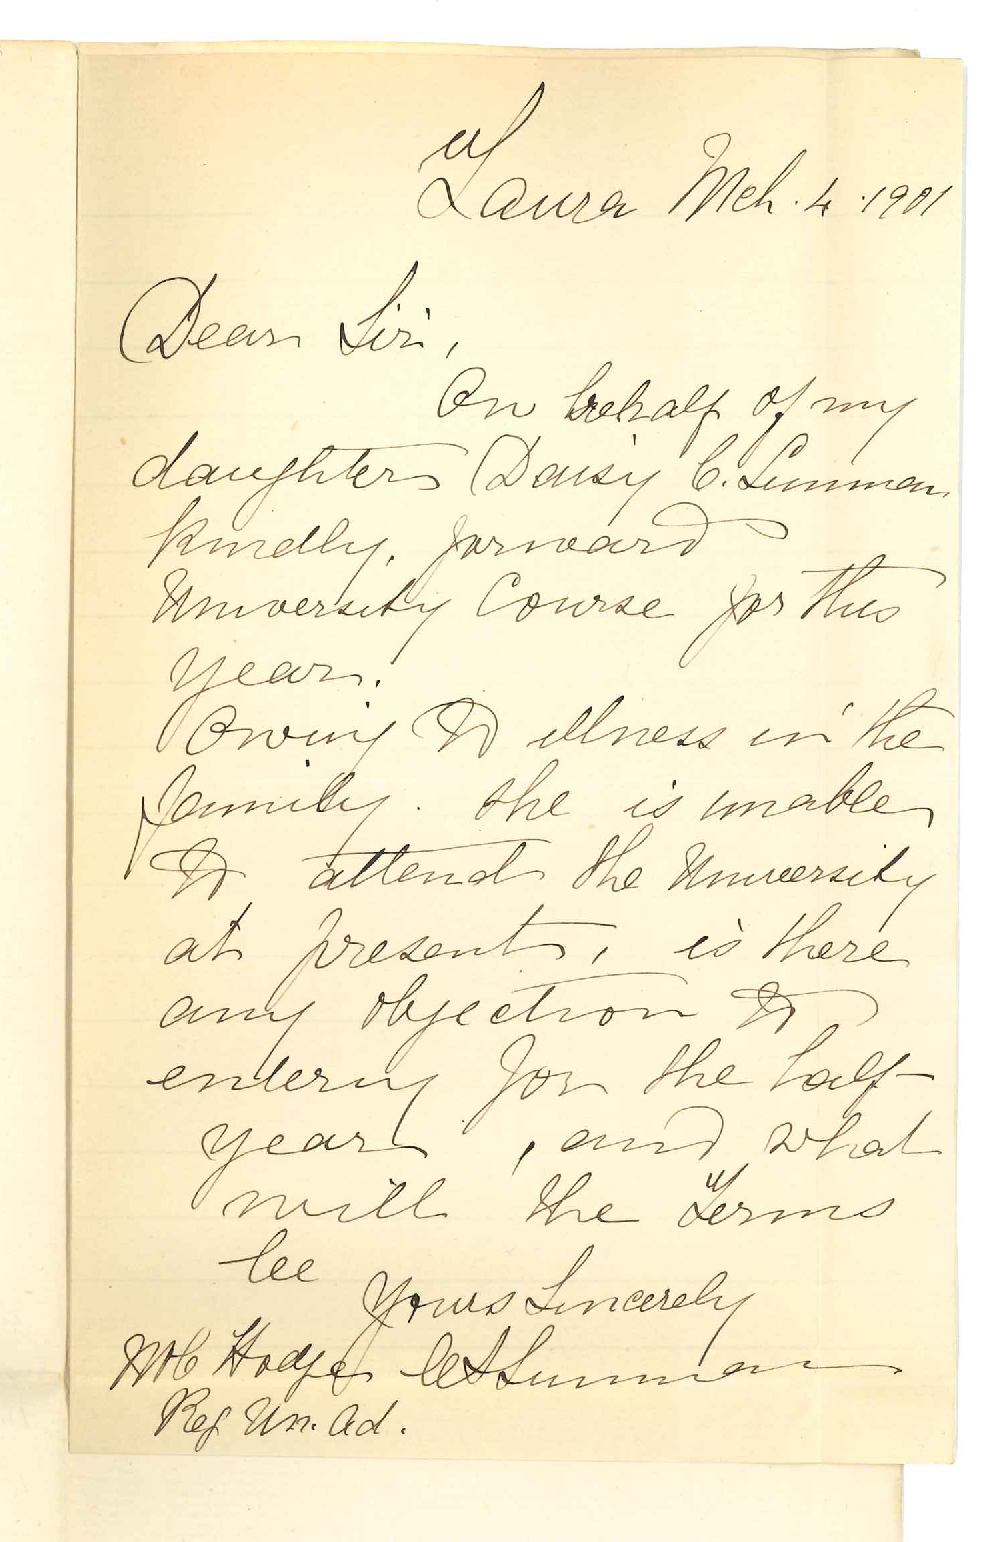 Laura Mch. 4. 1901
Dear Sir,
On behalf of my
daughter Daisy C. Summan
kindly, forward
University Course for this
year.
Owing to illness in the
family. she is unable
to attend the University
at present, is there
any objection to
entering for the half-
year, and what
will the Terms
be
Yours Sincerely
Hodge
Reg Un. Ad.